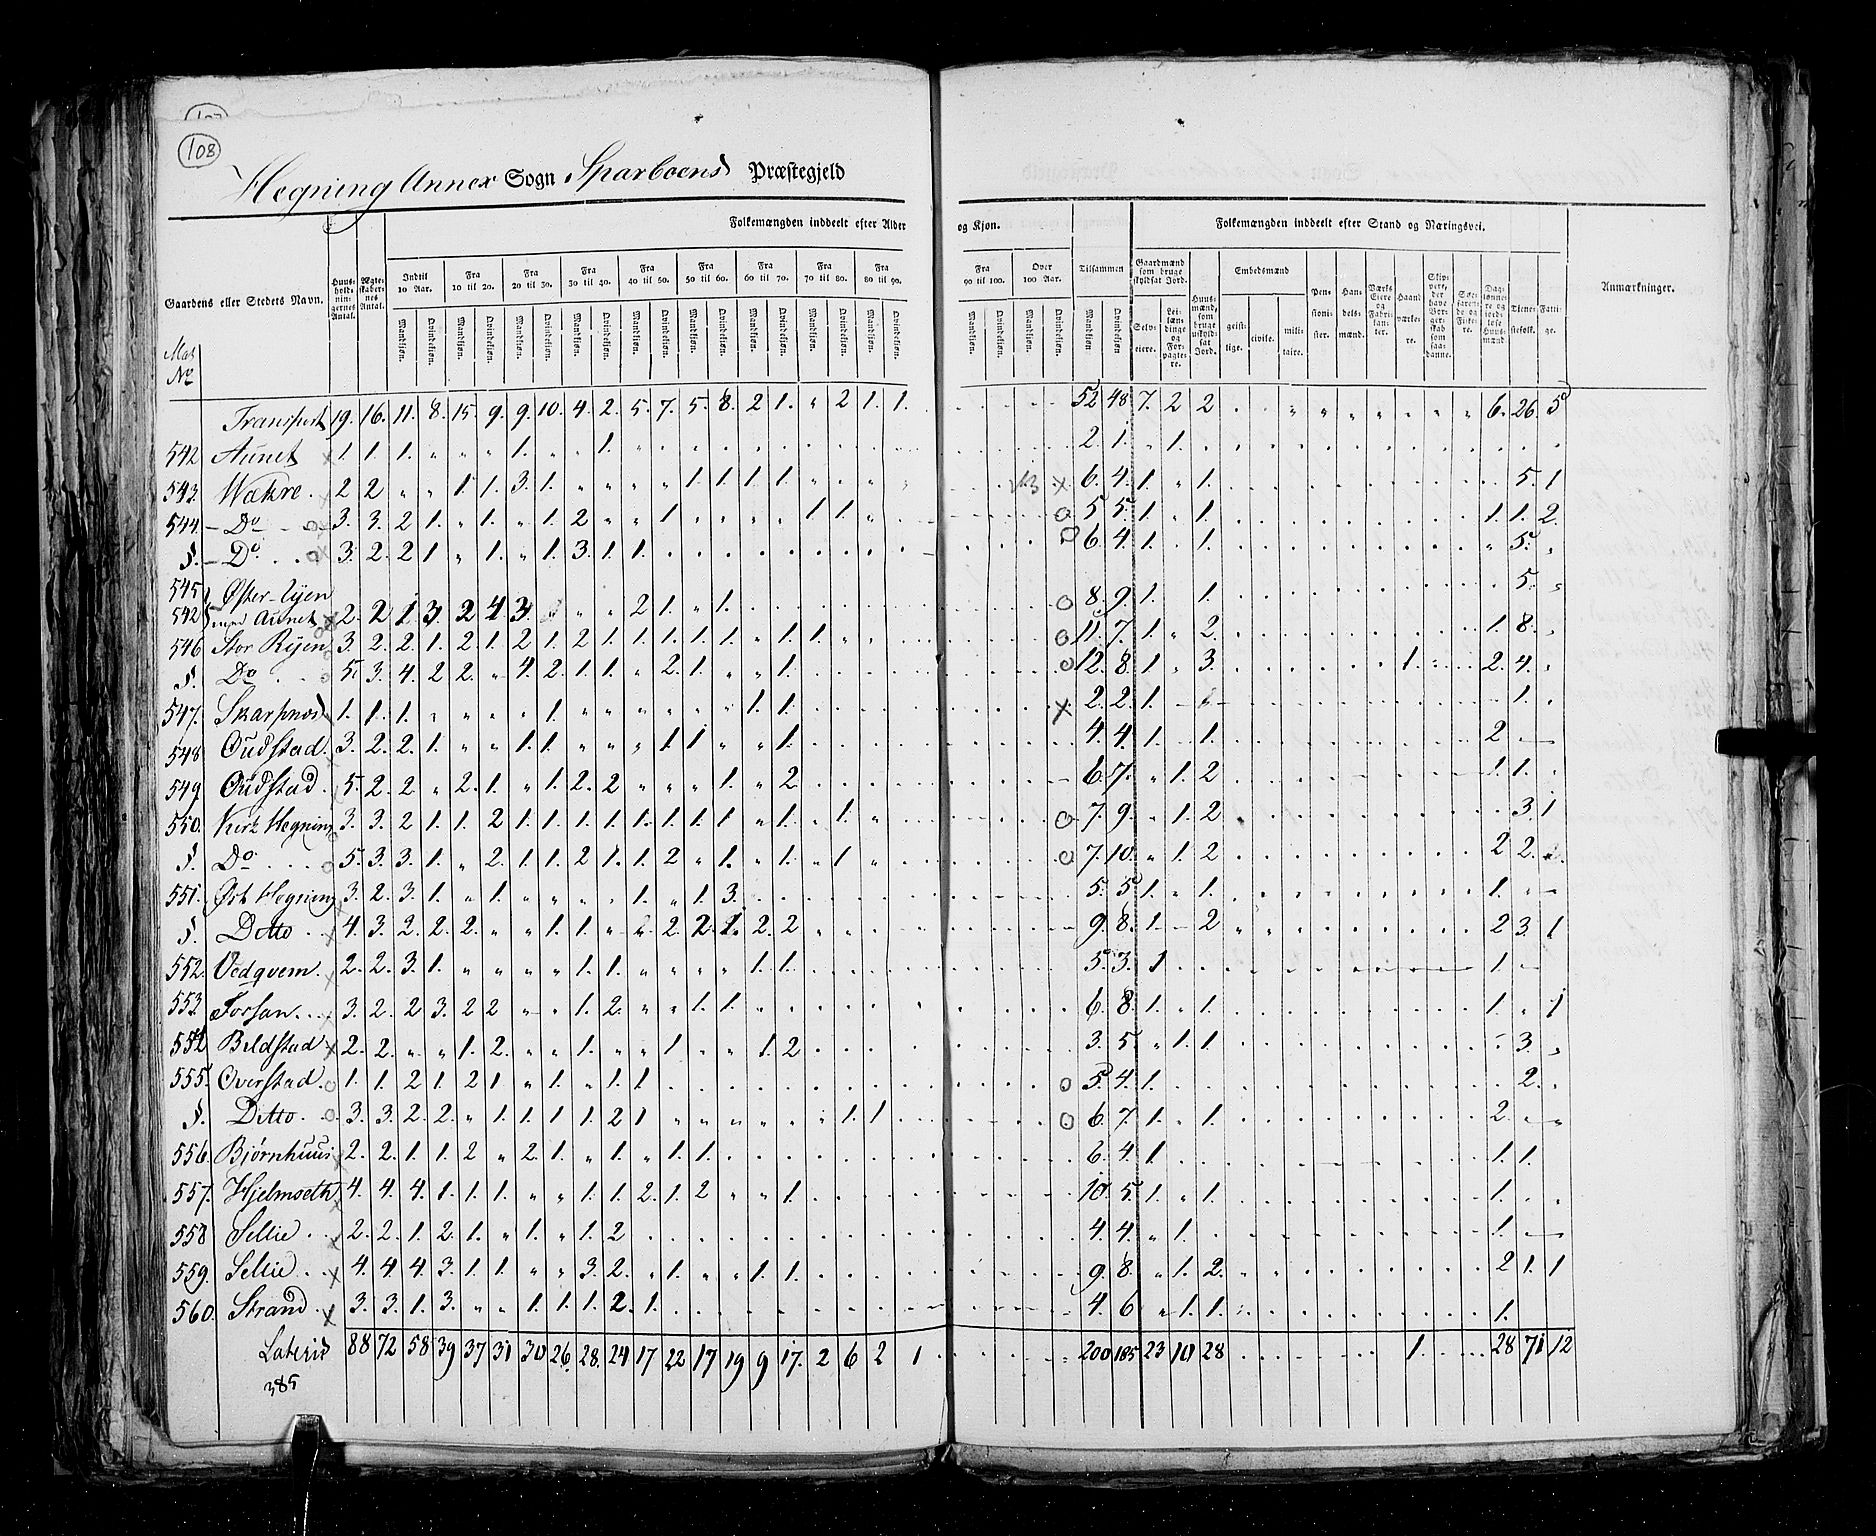 108
Hegning Annex Sogn Sparboens Præstegjeld
Folkemængden inddeelt efter Alder og Kjøn.
Folkemængden inddeelt efter Stand og Næringsvei.
Gaardens eller Stedets Navn.
Huusholdningernes Antal.
Ægteskabernes Antal.
Indtil 10 Aar.
Fra 10 til 20.
Fra 20 til 30.
Fra 30 til 40.
Fra 40 til 50.
Fra 50 til 60.
Fra 60 til 70.
Fra 70 til 80.
Fra 80 til 90.
Fra 90 til 100.
Over 100 Aar.
Tilsammen
Mandkjøn. Qvindekjøn.
Gaardmænd som bruge skyldsat Jord.
Selveiere.
Leilændinge og Forpagtere.
Huusmænd, som bruge uskyldsat Jord.
Embedsmænd
geistlige. civile. militaire.
Pensionister.
Handelsmænd.
Værks Eiere og Fabrikanter.
Haandværkere.
Anmærkninger.
Mat No
Transport 19. 16. 11. 8. 15. 9. 9. 10. 4. 2. 5. 7. 5. 8. 2 1. " 2 1. 1. 52 48 7. 2 2 6. 26. 5
542 Aunet 1 1. 1. " " " 1. " " 1. 2 1. " 1.
543. Wækre 2 2 " " 1. 1. 3. 1. " " " " 1. 1. 1. 1. x 6. 4. 1. " 1. 5. 1
544. Do 3. 3. 2 1. " 1. " 1. 2 " " 1. " " " " 1. 1. " o 5 5. 1. " 1. 1. 1. 2.
§. Do 3. 2. 2 1 " 1. " 1. 3. 1. 1. o 6. 4. 1. 1. " 5. "
545 Øster-Ryen 5. "
542 med Aunet 2. 2 1 3. 2 4 3. " " 2 1. " 1. o 8. 9. 1. 1
546 Stor Ryen 3. 2. 2. 1. 2. 1. 2 1. 2 1. 1. 1. 1. 1. " 1. 1. " o 11. 7. 1. " 2. 1. 8.
§. Do 5. 3. 4. 2 2. " 4. 2. 1. 1. " 2. 1. " " 1. o 12. 8. 1 " 3. 1. 2. 4.
547. Skarpnes 1. 1. 1. " " " " 1. " " " " " " 1. 1. x 2. 2. 1. 1.
548 Oudstad 3. 2. 2. 1. " " 1. 1. " " " 1. 1 " " 1. 4. 4. 1. 1. 2
549 Oudstad 5. 2. 2. " 2. 1. " 1. 2. 2 " " " 1. " 2 6. 7. " 1. 2 1. 1.
550. Kirk Hegning 3. 3. 2 1. 1. 2 1. 1. 1. 1. 1. 1. 1. 1. " 1. " 1. " o 7. 9. " 1. 2 3. 1
§. Do 5. 3. 3. 1. " 2. 1. 1. 2 1. 1. 2 " 1. " 1. " 1 " o 7. 10. " 1. 2 2 2.
551. Øst Hegning 3. 2. 3. 1. " 1. " " " " 1. " 1. 3. 5. 5 1. " 1. 1.
§. Ditto 4. 3. 2. 2. 2. " " 1. 1. " 2. 2. 1. 2. 2 9. 8. 1. 2 2 3. 1
552. Vedqvem 2. 2. 3. 1. " " " " 1. 1. " " " " 1. 1. 5. 3. 1 1.
553 Forsan 3. 2. 2 3. 2 2 1. 2. " " 1. 1. 6. 8. 1. " 1. 1. " 1
554 Bildstad x 2. 2. " " 1. 2. " " 1. " " 1 " " 1. 2 3. 5. " 1. 1. 3.
555. Overstad o 1. 1. 2 1. 2 1 " 1. " 1. 1. o 5. 4. 1. 2.
§. Ditto o 3. 3. 2. 2. " 1. 1. 1. 1. 2 1 " " " " " " 1. 1 o 6. 7. 1. " 1. 2.
556. Bjørnhuus 2. 2. 1. 1. 2 " 2. 1. " 1. " 1. 1. 6. 4. 1. 1. 1.
557. Hjelmseth 4. 4. 4. 1. 1. 1. " " 1. 1. 2. 1. 2 " " 1. 10. 5. 1. " 1. 1.
558 Sellie 2. 2. 1. 2. 1. " 1. " 1. 2 4. 4. " 1. 1.
559. Sellie x 4. 4. 4. 3. 1. 1. " " 3. 2. " 1. " " 1. 1. 9. 8. " 1. 2. 2 1. 1
560. Strand x 3. 3. 1. 3. " " 1. 1. 1. 2. 1. 4. 6 " 1. 1. 1.
Lateris 88 72 58 39 37 31 30 26. 28. 24 17 22 17 19 9 17. 2 6 2 1 200 185 23 10 28 1. 28 71 12
385